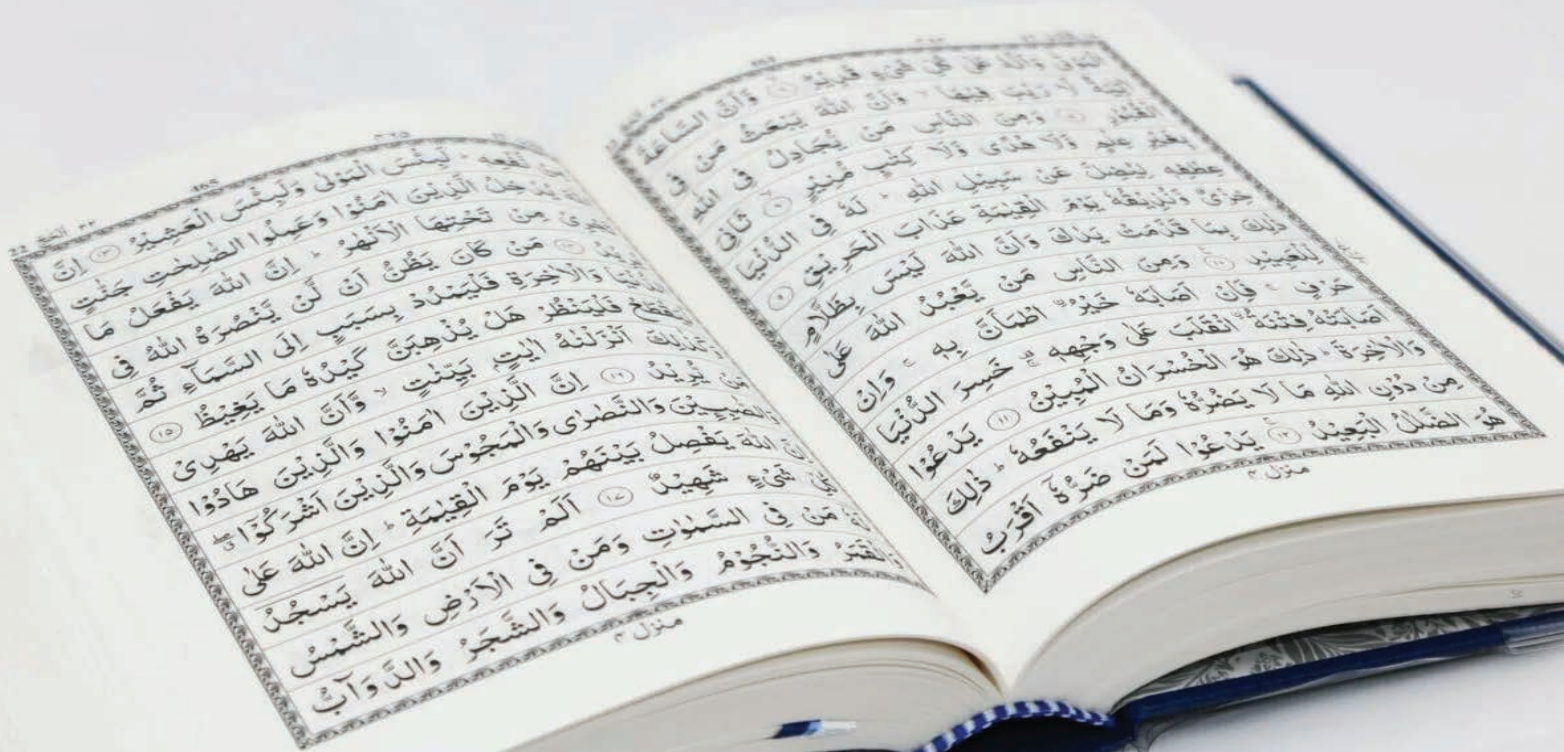 الْمَوْتٰى وَاَنَّهٗ عَلٰى كُلِّ شَىْءٍ قَدِيْرٌ ۶ وَّاَنَّ السَّاعَةَ
اٰتِيَةٌ لَّا رَيْبَ فِيْهَا ۙ وَاَنَّ اللّٰهَ يَبْعَثُ مَنْ فِى
الْقُبُوْرِ ۷ وَمِنَ النَّاسِ مَنْ يُّجَادِلُ فِى اللّٰهِ
بِغَيْرِ عِلْمٍ وَّلَا هُدًى وَّلَا كِتٰبٍ مُّنِيْرٍ ۸ ثَانِىَ
عِطْفِهٖ لِيُضِلَّ عَنْ سَبِيْلِ اللّٰهِ ؕ لَهٗ فِى الدُّنْيَا
خِزْىٌ وَّنُذِيْقُهٗ يَوْمَ الْقِيٰمَةِ عَذَابَ الْحَرِيْقِ ۹
ذٰلِكَ بِمَا قَدَّمَتْ يَدٰكَ وَاَنَّ اللّٰهَ لَيْسَ بِظَلَّامٍ
لِّلْعَبِيْدِ ۱۰ وَمِنَ النَّاسِ مَنْ يَّعْبُدُ اللّٰهَ عَلٰى
حَرْفٍ ۚ فَاِنْ اَصَابَهٗ خَيْرُ ۨاطْمَاَنَّ بِهٖ ۚ وَاِنْ
اَصَابَتْهُ فِتْنَةُ ۨانْقَلَبَ عَلٰى وَجْهِهٖ ۚ خَسِرَ الدُّنْيَا
وَالْاٰخِرَةَ ؕ ذٰلِكَ هُوَ الْخُسْرَانُ الْمُبِيْنُ ۱۱ يَدْعُوْا
مِنْ دُوْنِ اللّٰهِ مَا لَا يَضُرُّهٗ وَمَا لَا يَنْفَعُهٗ ؕ ذٰلِكَ
هُوَ الضَّلٰلُ الْبَعِيْدُ ۱۲ يَدْعُوْا لَمَنْ ضَرُّهٗۤ اَقْرَبُ
منزل ۴
22 الحج ۲۲
465
نَّفْعِهٖ ؕ لَبِئْسَ الْمَوْلٰى وَلَبِئْسَ الْعَشِيْرُ ۱۳ اِنَّ
يُدْخِلُ الَّذِيْنَ اٰمَنُوْا وَعَمِلُوا الصّٰلِحٰتِ جَنّٰتٍ
تَجْرِىْ مِنْ تَحْتِهَا الْاَنْهٰرُ ؕ اِنَّ اللّٰهَ يَفْعَلُ مَا
يُرِيْدُ ۱۴ مَنْ كَانَ يَظُنُّ اَنْ لَّنْ يَّنْصُرَهُ اللّٰهُ فِى
الدُّنْيَا وَالْاٰخِرَةِ فَلْيَمْدُدْ بِسَبَبٍ اِلَى السَّمَآءِ ثُمَّ
لْيَقْطَعْ فَلْيَنْظُرْ هَلْ يُذْهِبَنَّ كَيْدُهٗ مَا يَغِيْظُ ۱۵
وَكَذٰلِكَ اَنْزَلْنٰهُ اٰيٰتٍۭ بَيِّنٰتٍ ۙ وَّاَنَّ اللّٰهَ يَهْدِىْ
مَنْ يُّرِيْدُ ۱۶ اِنَّ الَّذِيْنَ اٰمَنُوْا وَالَّذِيْنَ هَادُوْا
وَالصّٰبِـِٕيْنَ وَالنَّصٰرٰى وَالْمَجُوْسَ وَالَّذِيْنَ اَشْرَكُوْۤا
اِنَّ اللّٰهَ يَفْصِلُ بَيْنَهُمْ يَوْمَ الْقِيٰمَةِ ؕ اِنَّ اللّٰهَ عَلٰى
كُلِّ شَىْءٍ شَهِيْدٌ ۱۷ اَلَمْ تَرَ اَنَّ اللّٰهَ يَسْجُدُ
لَهٗ مَنْ فِى السَّمٰوٰتِ وَمَنْ فِى الْاَرْضِ وَالشَّمْسُ
وَالْقَمَرُ وَالنُّجُوْمُ وَالْجِبَالُ وَالشَّجَرُ وَالدَّوَآبُّ
منزل ۴